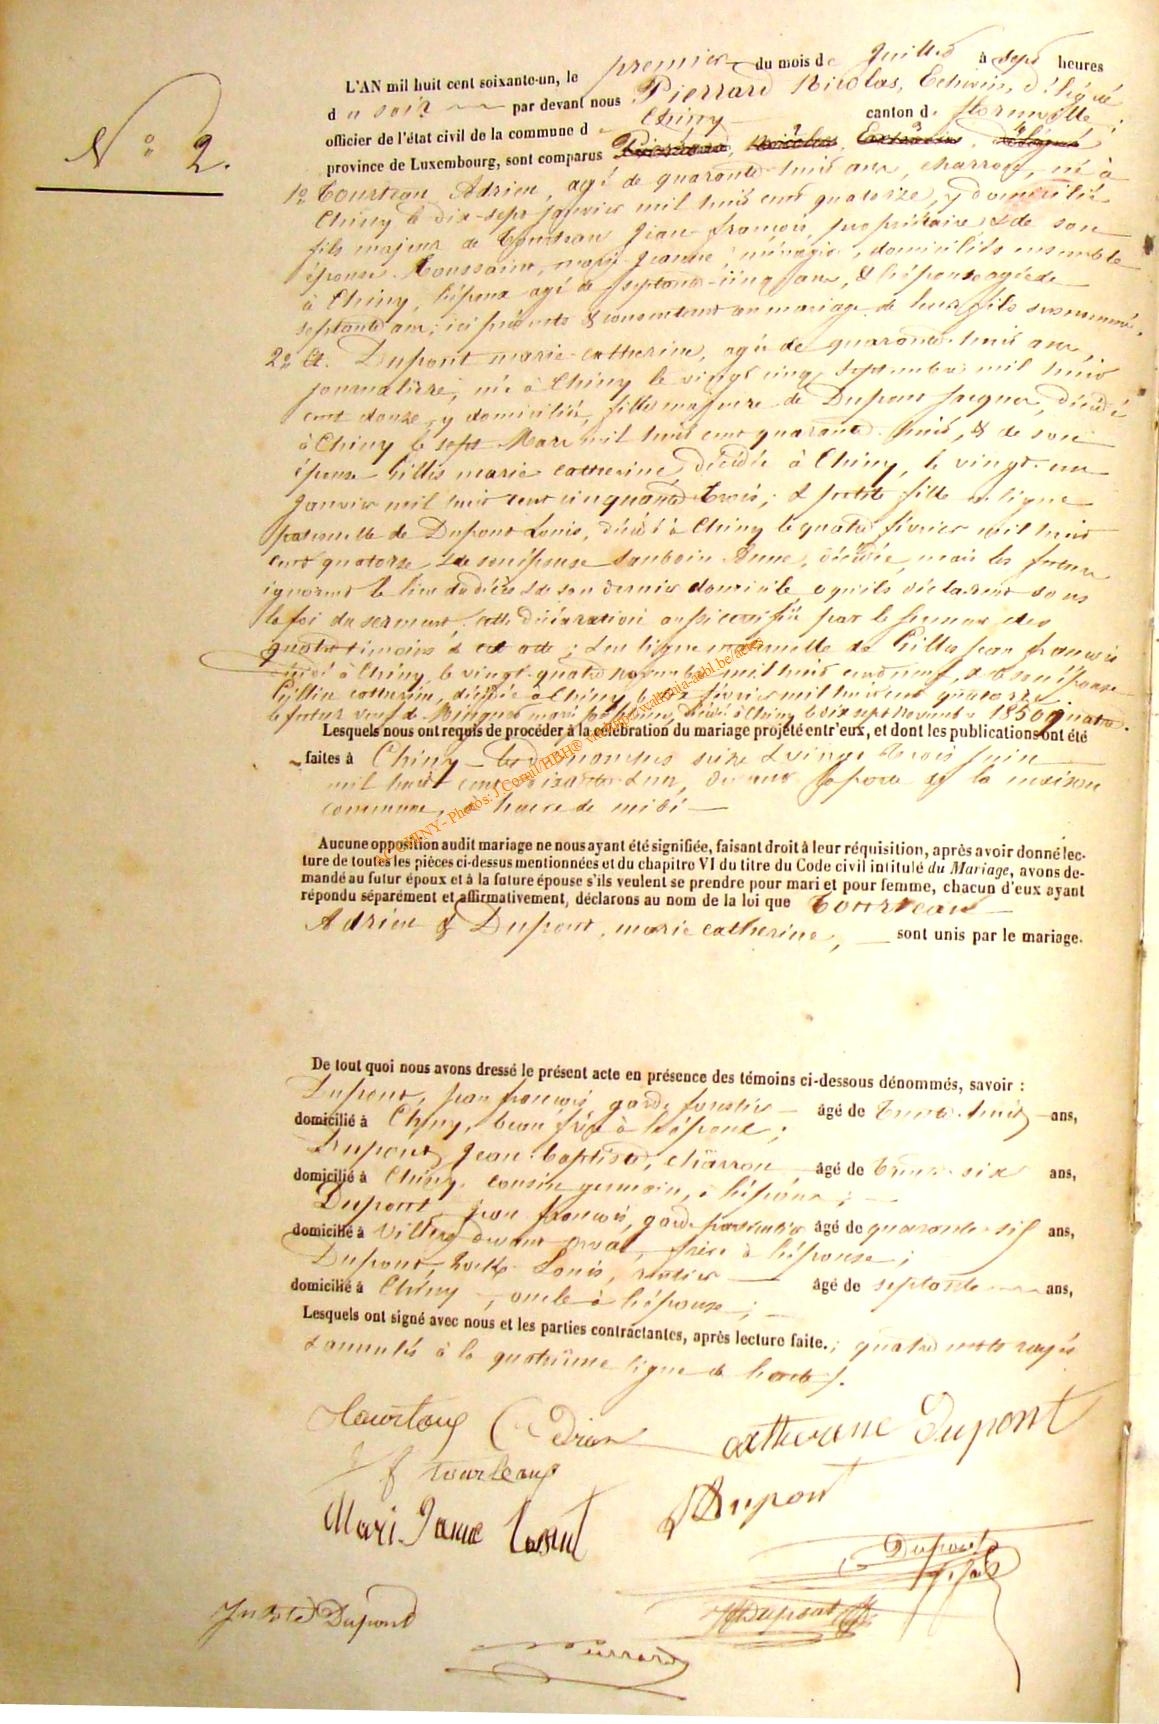 N.° 2.
L'AN mil huit cent soixante-un, le premier du mois de Juillet à sept heures
du soir par devant nous Pierrard Nicolas, Echevin, délégué
officier de l'état civil de la commune d Chiny canton de florenville,
province de Luxembourg, sont comparus Pierrard, Nicolas, Echevin, délégué
1° Tourteau Adrien, agé de quarante-huit ans, charron, né à
Chiny le dix-sept janvier mil huit cent quatorze, y domicilié
fils majeur de Tourteau Jean-françois, propriétaire & de son
épouse Toussaint, marie Jeanne, ménagère, domiciliés ensemble
à Chiny, l'époux agé de septante-cinq ans, & l'épouse agée de
septante ans; ici présents & consentant au mariage de leur fils susnommé.
2° Et Dupont marie-catherine, agée de quarante-huit ans,
journalière, née à Chiny le vingt cinq septembre mil huit
cent douze, y domiciliée, fille majeure de Dupont Jacques, décédé
à Chiny le sept Mars mil huit cent quarante-huit, & de son
épouse Gillet marie catherine, décédée à Chiny, le vingt-un
Janvier mil huit cent cinquante trois; & petite fille en ligne
paternelle de Dupont Louis, décédé à Chiny le quatre février mil huit
cent quatorze & de son épouse Anne, décédée, mais les futurs
ignorent le lieu du décès & de son dernier domicile, ce qu'ils déclarent sous
la foi du serment, cette déclaration aussi certifiée par le serment des
quatre témoins à cet acte; & en ligne maternelle de Gillet Jean françois
décédé à Chiny, le vingt-quatre novembre mil huit cent neuf, & de son épouse
catherine, décédée à Chiny le février mil huit cent quatorze
le futur veuf de marie décédée à Chiny le dix sept novembre 1850 quatre.
Lesquels nous ont requis de procéder à la célébration du mariage projeté entr'eux, et dont les publications ont été
faites à Chiny les dimanches seize & vingt trois juin
mil huit cent soixante & un, devant la porte de la maison
commune, à heure de midi
Aucune opposition audit mariage ne nous ayant été signifiée, faisant droit à leur réquisition, après avoir donné lec-
ture de toutes les pièces ci-dessus mentionnées et du chapitre VI du titre du Code civil intitulé du Mariage, avons de-
mandé au futur époux et à la future épouse s'ils veulent se prendre pour mari et pour femme, chacun d'eux ayant
répondu séparément et affirmativement, déclarons au nom de la loi que Tourteau
Adrien & Dupont, marie catherine, sont unis par le mariage.
De tout quoi nous avons dressé le présent acte en présence des témoins ci-dessous dénommés, savoir :
Dupont, jean françois garde forestier âgé de trente-huit ans,
domicilié à Chiny, beau frère à l'épouse;
Dupont Jean-baptiste, charron âgé de trente-six ans,
domicilié à Chiny, cousin germain, à l'épouse;
Dupont jean françois, garde forestier âgé de quarante-sept ans,
domicilié à Villers devant orval, frère à l'épouse;
Dupont, Louis, rentier âgé de septante ans,
domicilié à Chiny, oncle à l'épouse;
Lesquels ont signé avec nous et les parties contractantes, après lecture faite.; quatre mots rayés
& annulés à la quatrième ligne de l'acte.
Tourtaux Adrien
Catherine Dupont
J f tourteaux
Dupont
Mari Janne
Dupont
Dupont
Dupont
Pierrard
AC CHINY - Photos: J.Cornil/HBH®